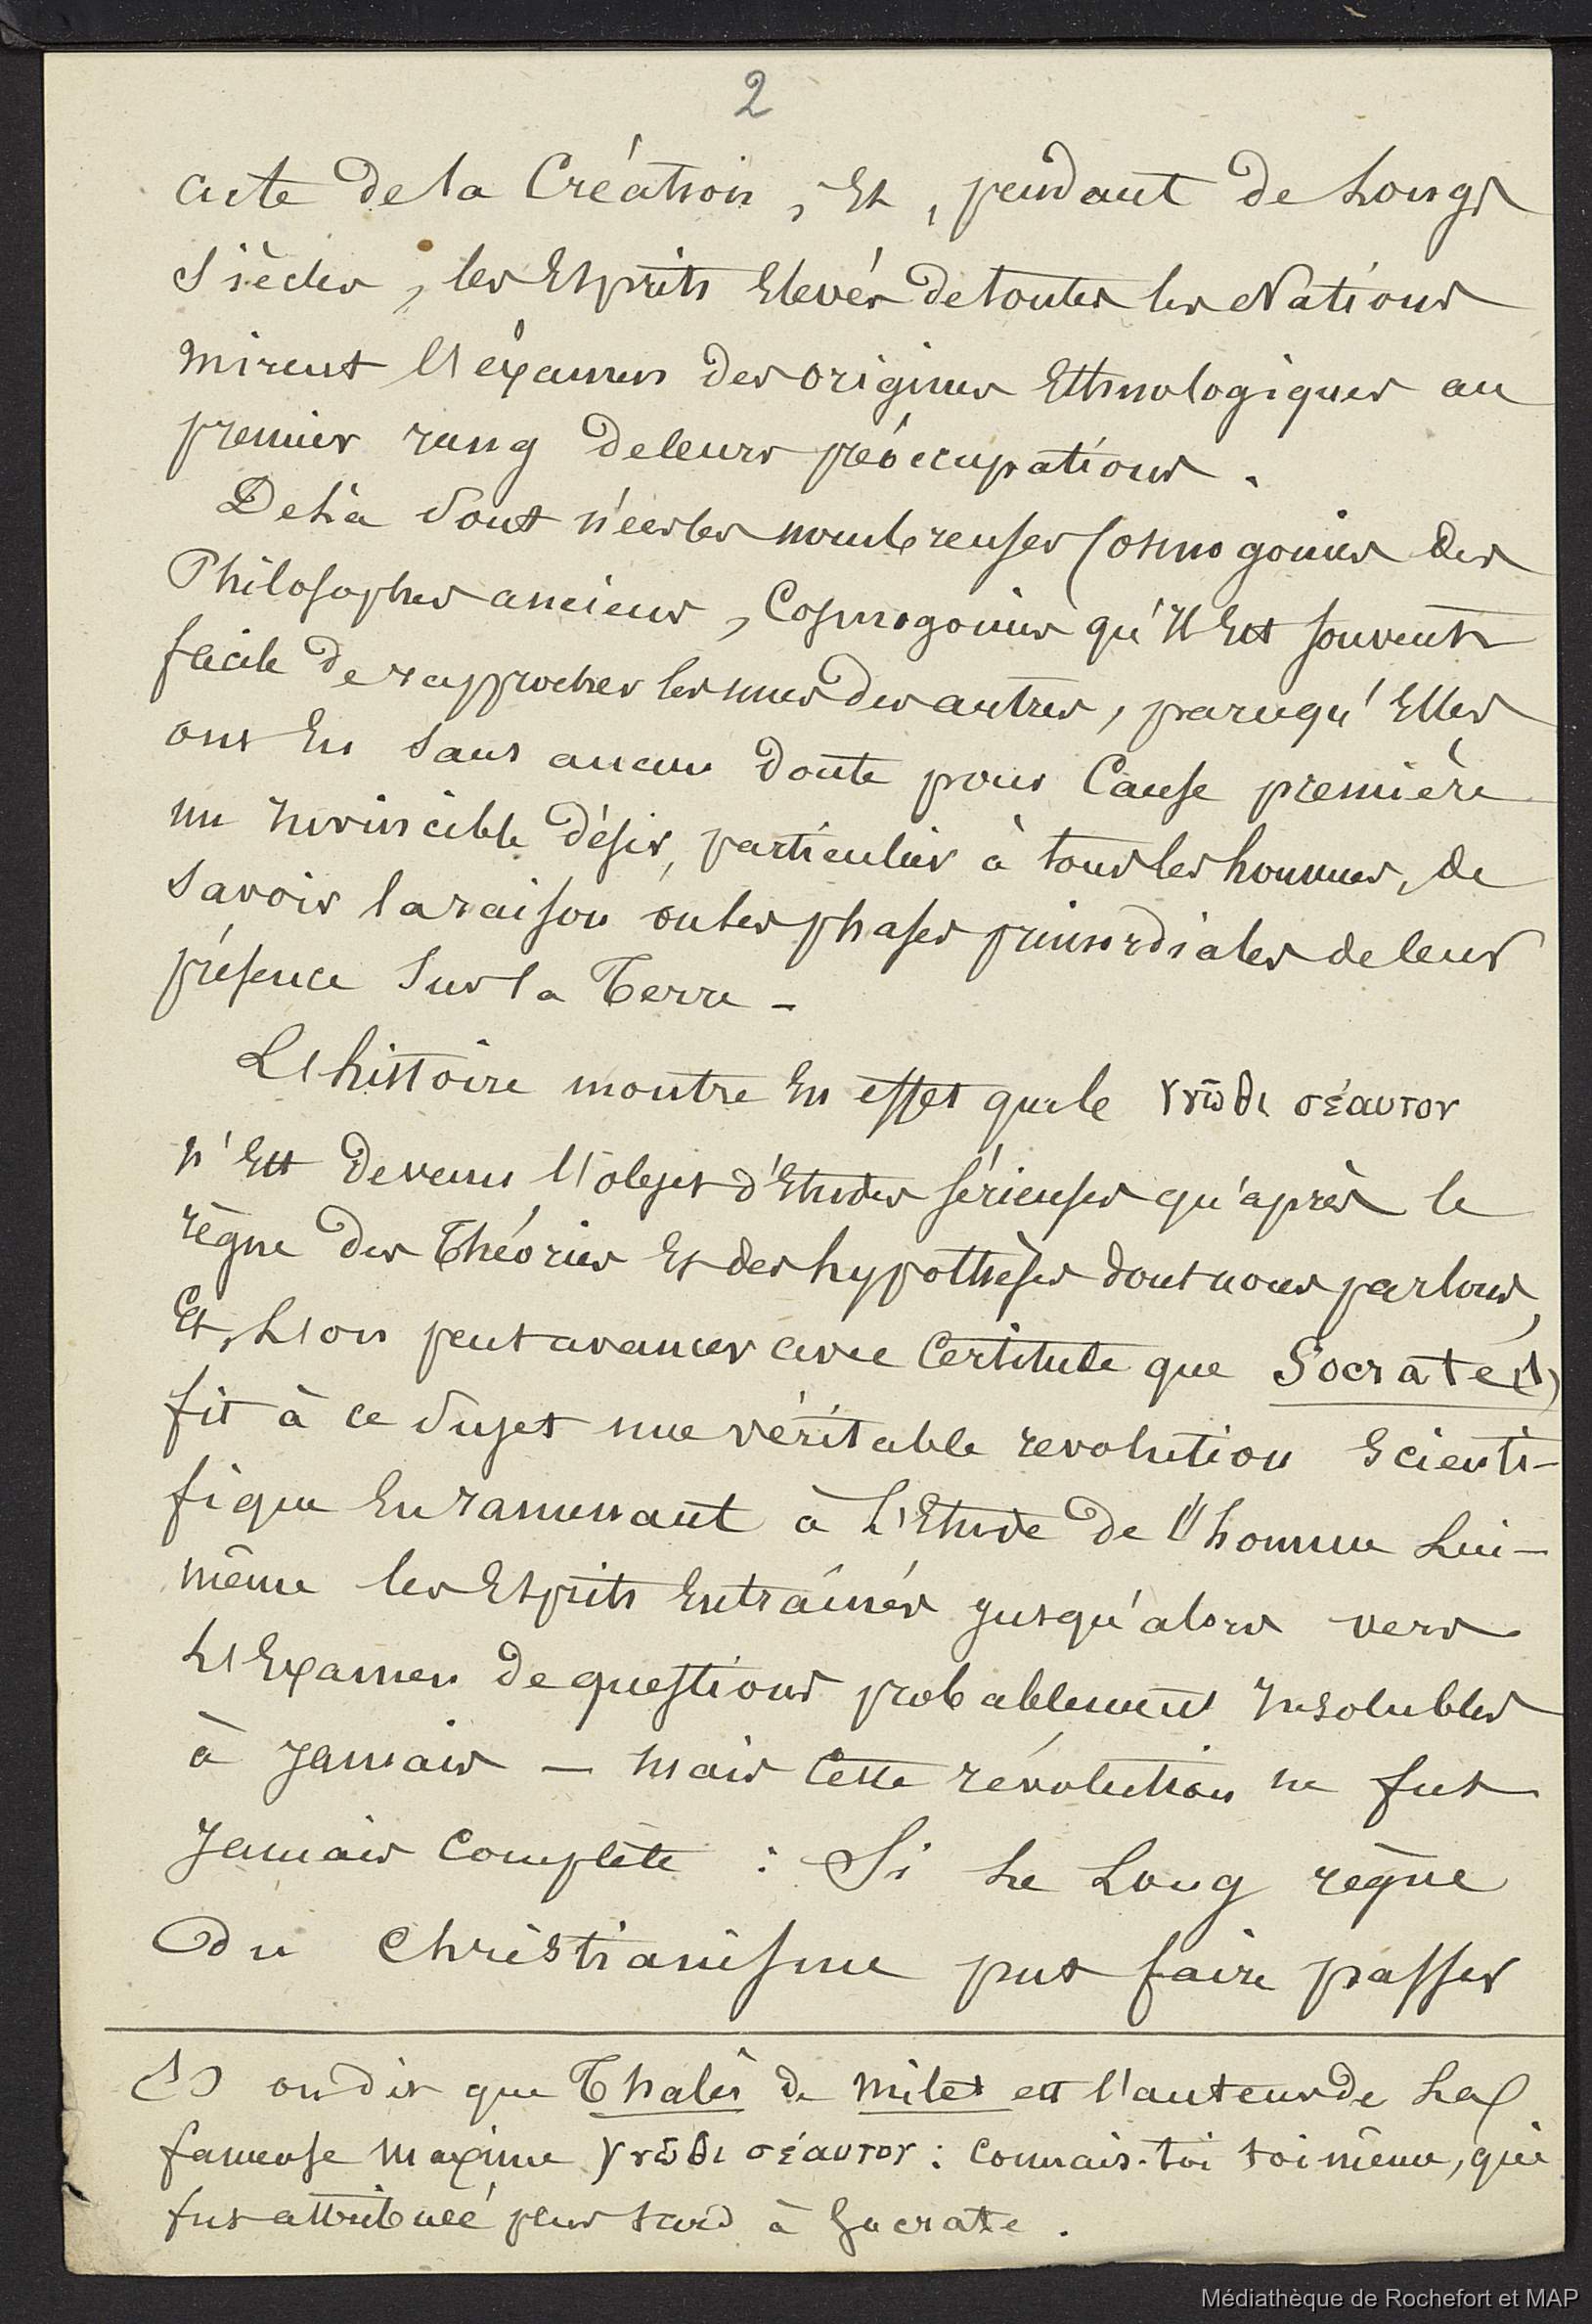 2
acte de la Création, Et, pendant de Longs
Siècles, les Esprits Elevés de toutes les Nations
mirent l'éxamen des origines Ethnologiques au
premier rang de leurs préoccupations.
De là sont nées les nombreuses Cosmogonies des
Philosophes anciens, Cosmogonies qu'Il Est souvent
facile de rapprocher les unes des autres, parcequ'Elles
ont Eu sans aucun doute pour Cause première
un Invincible désir, particulier à tous les hommes, de
savoir la raison ou les phases primordiales de leur
présence sur la Terre -
L'histoire montre En effet que le γνῶθι σέαυτον
n'Est devenu l'objet d'Etudes sérieuses qu'après le
règne des Théories Et des hypothèses dont nous parlons,
Et, L'on peut avancer avec Certitude que Socrate (1)
fit à ce sujet une véritable revolution Scienti-
fique En ramenant à L'Etude de l'homme Lui-
même les Esprits Entraînés jusqu'alors vers
L'Examen de questions probablement Insolubles
à Jamais - mais Cette révolution ne fut
Jamais Complète : Si Le Long règne
du Christianisme put faire passer
(1) on dit que Thalès de Milet est l'auteur de La
fameuse maxime γνῶθι σέαυτον : Connais-toi toi même, qui
fut attribuée plus tard à Socrate.
Médiathèque de Rochefort et MAP